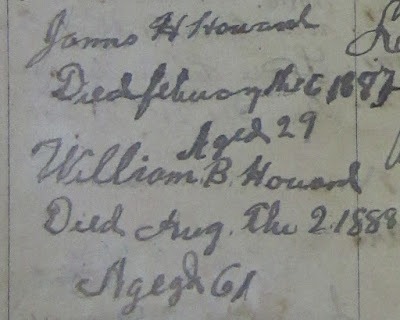 James H Howard
Died february the 6 1887
Aged 29
William. B. Howard
Died Aug. The 2. 1888
Agegd 61